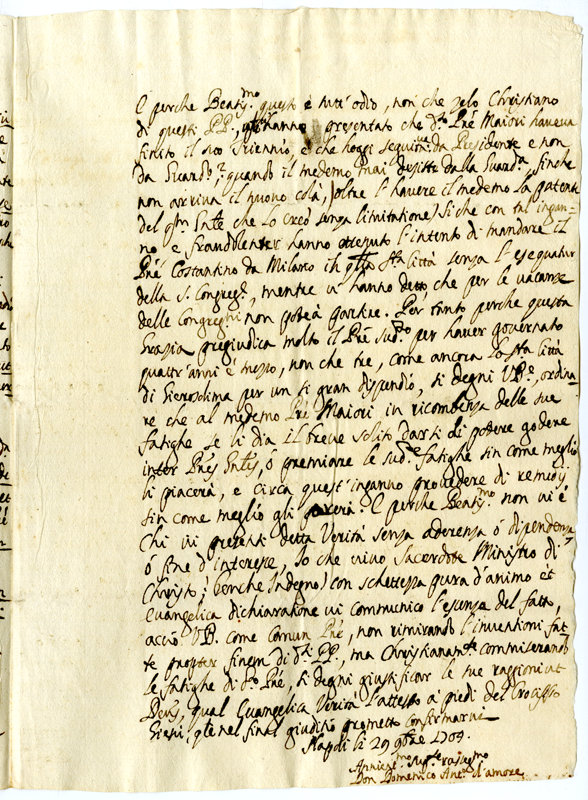 E perche Beatis.mo questo è tutt'odio, non che zelo Christiano
di questi PP., hanno presentato che d.to Pñe Maiori haveva
finito il suo Triennio, e che hoggi seguitava da Presidente e non
da Guard.o, quando il medemo mai desiste dalla Guard.a, finche
non arriva il nuovo colà, (oltre l'havere il medemo la patente
del che lo creò senza limitatione) si che con tal ingan-
no e hanno ottenuto l'intento di mandare il
Pñe Costantino da Milano in Sta Città senza l'esequatur
della S. Congreg.e, mentre vi hanno detto, che per le vacanze
delle Congreg.ni non poteà partire. Per tanto perche questa
grazia pregiudica molto il Pñe Sud.to per haver governato
quattr'anni è mezzo, non che tre, come ancora la Sta Città
di Gierosolima per un si gran dispendio, si degni V.Be, ordina-
re che al medemo Pñe Maiori in ricompenza delle sue
fatighe se li dia il breve solito darsi di potere godere
inter Pñes ò premiare le sud.e fatighe sin come meglio
li piacerà, e circa quest'inganno provedere di remedij
sin come meglio gli parerà. E perche Beatis.mo non vi è
chi vi presenti detta Verità senza aderenza ò dipendenza
ò fine d'interesse, Io che vivo Sacerdote Ministro di
Christo, (benche Indegno) con schettezza pura d'animo et
Evangelica dichiaratione vi communico l'essenza del fatto,
acciò V.B. come Comun Pñe, non rimirando l'inventioni fat-
te propter finem di d.ti PP., ma Christianam.te commiserando
le fatighe di d.to Pñe, si degni giustificar le sue raggioni ut
Deus, qual Evangelica Verità l'attesto a' piedi del Crocifisso
Giesù, q.le nel final giuditio prometto confirmarvi
Napoli li 29 9bre 1709.
Don Domenico Ant.o d'amore